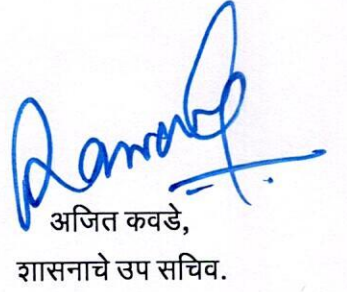 अजित कवडे,
शासनाचे उप सचिव.